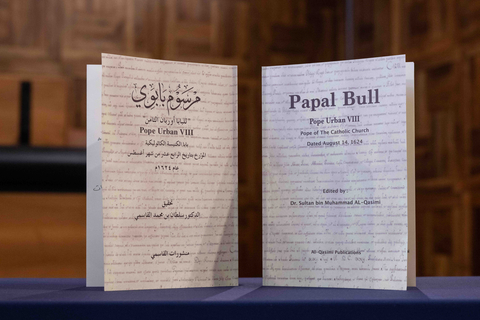 مرسوم بابوي
"للبابا أوربان الثامن"
Pope Urban VIII
بابا الكنيسة الكاثوليكية
المؤرخ بتاريخ الرابع عشر من شهر أغسطس
عام ١٦٢٤م
تحقيق
الدكتور سلطان بن محمد القاسمي
منشورات القاسمي
Papal Bull
Pope Urban VIII
Pope of The Catholic Church
Dated August 14, 1624
Edited by :
Dr. Sultan bin Muhammad AL-Qasimi
Al-Qasimi Publications